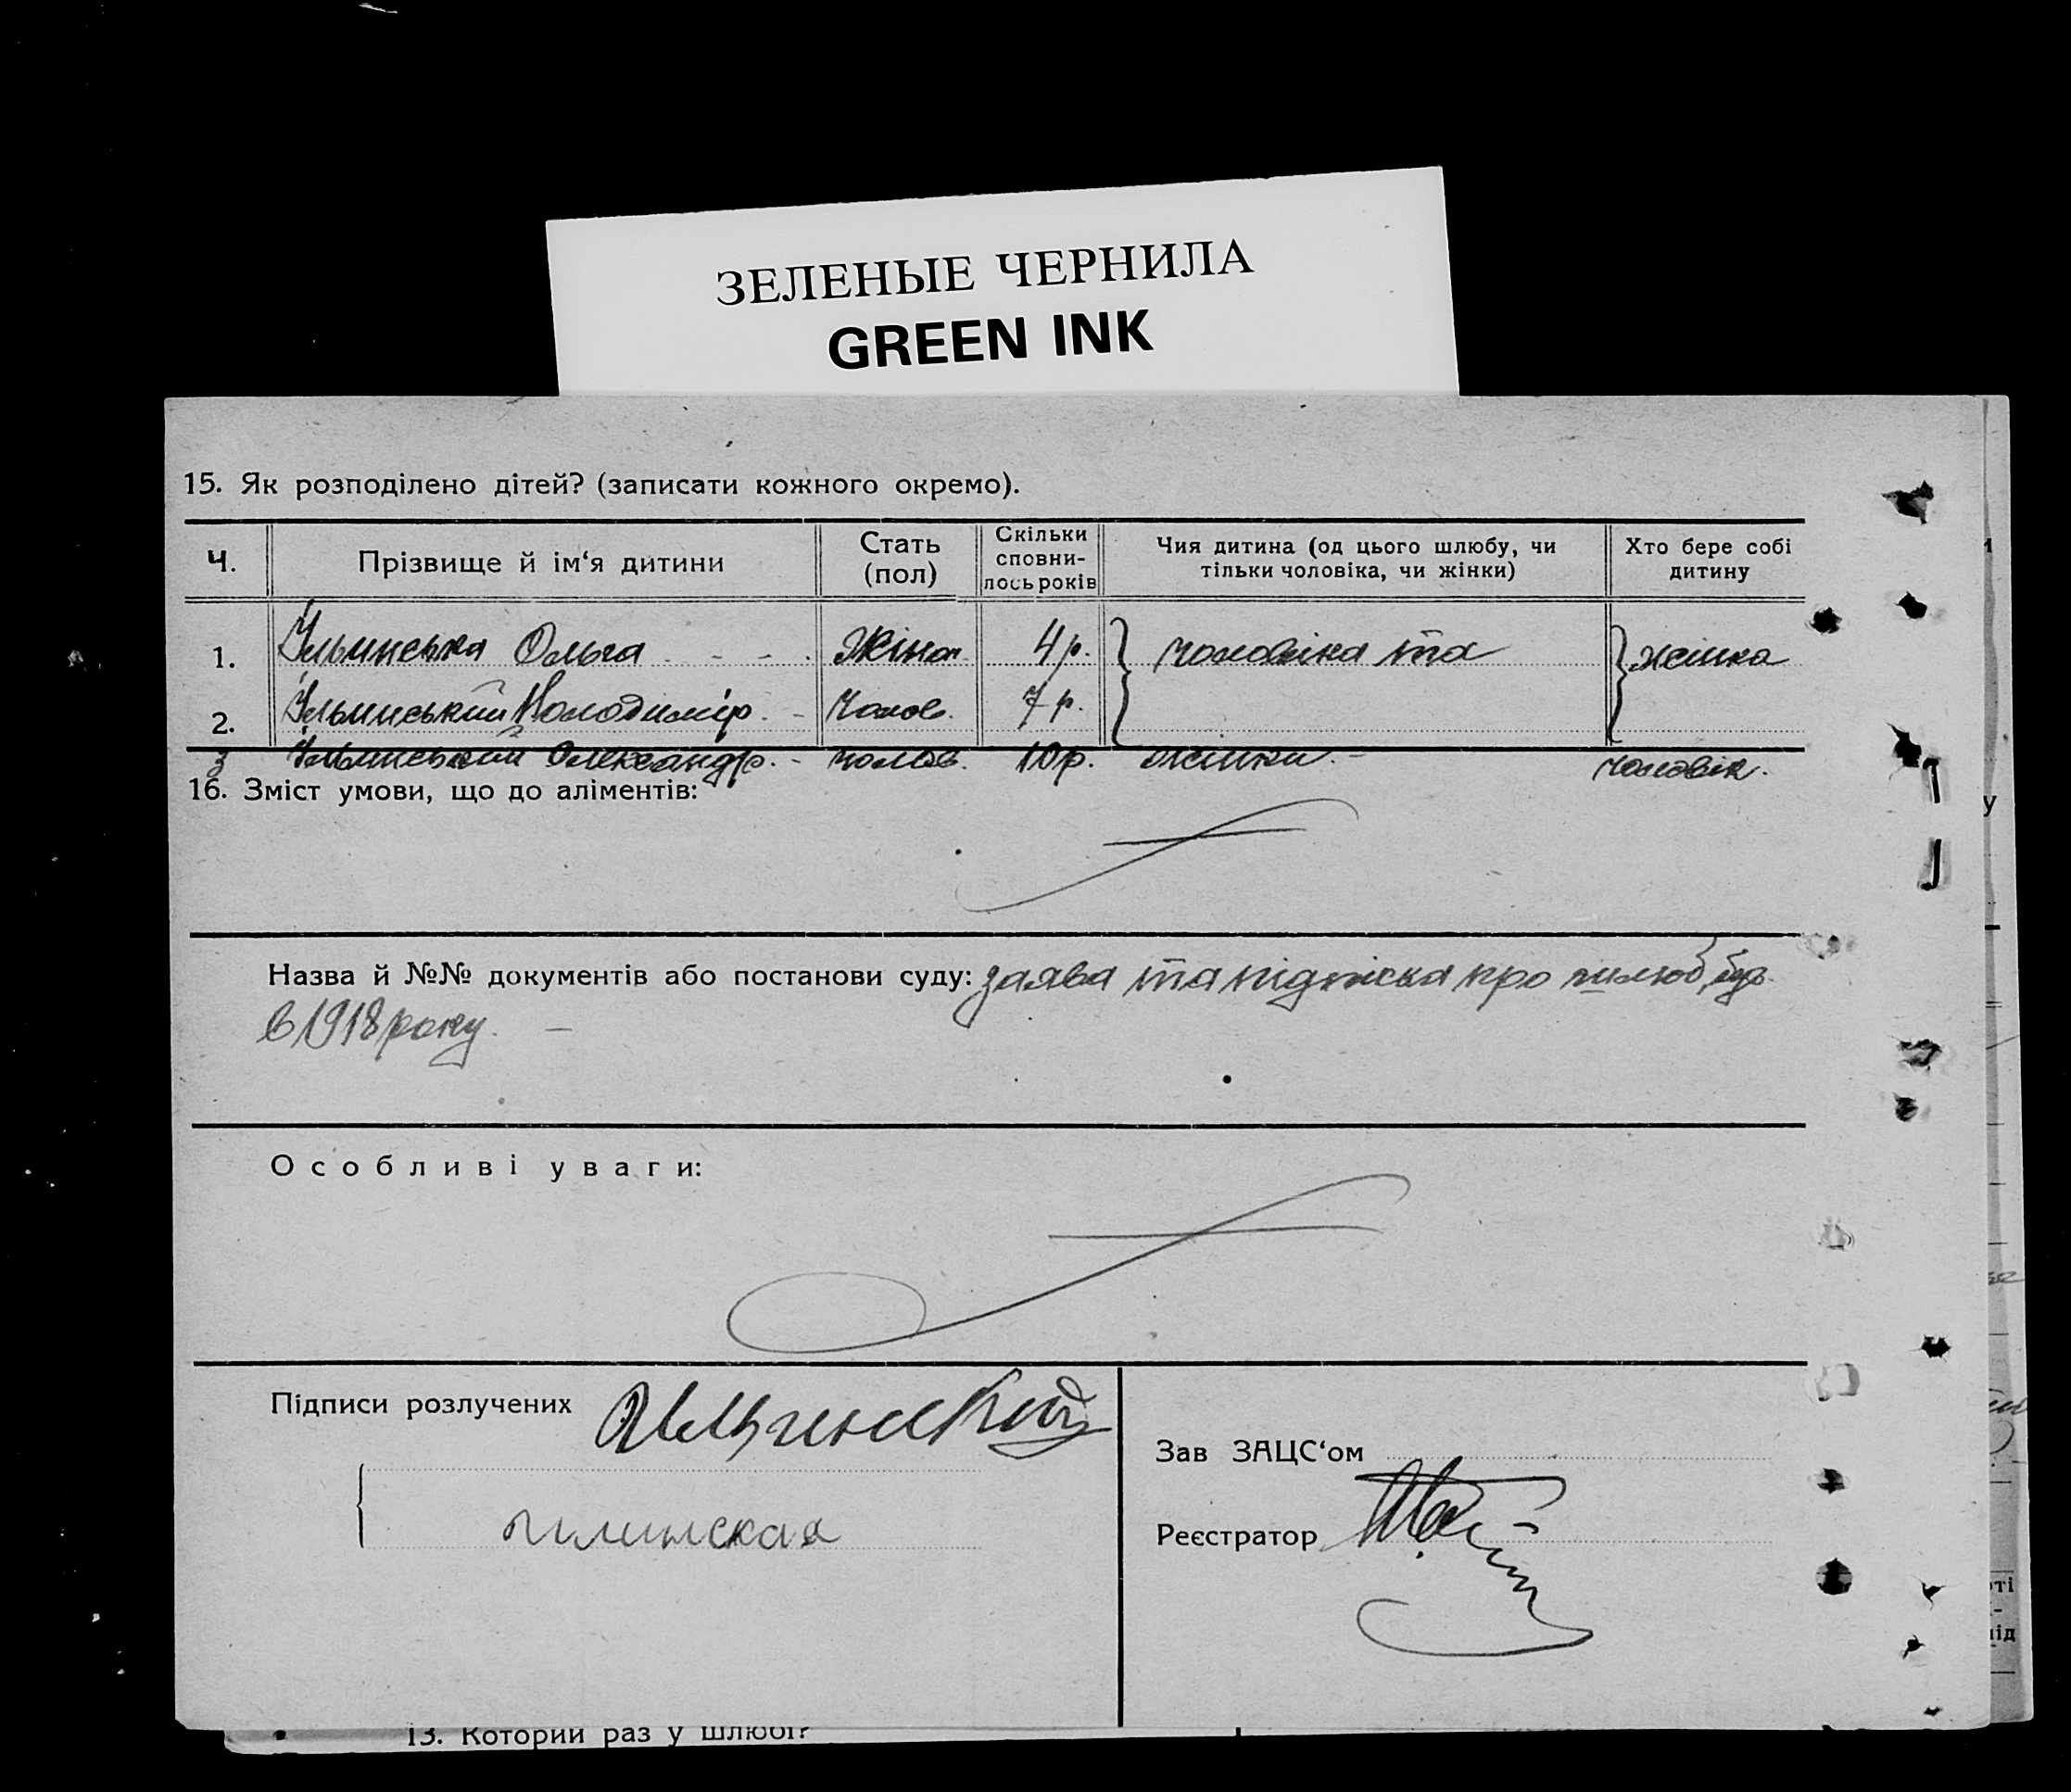 ЗЕЛЕНЫЕ ЧЕРНИЛА
GREEN INK
15. Як розподілено дітей? (записати кожного окремо).
Ч. Прізвище й ім‘я дитини Стать (пол) Скільки сповни-лось років Чия дитина (од цього шлюбу, чи тільки чоловіка, чи жінки) Хто бере собі дитину
1. Ільинська Ольга Жіноч. 4 р. чоловіка та жінка
2. Ільинський Володимір. Чолов. 7 р.
3 Ільинський Олександр. чолов. 10 р. жінки. чоловік.
16. Зміст умови, що до аліментів:
Назва й №№ документів або постанови суду: заява та підпіска про шлюб
в 1918 року.
Особливі уваги:
Підписи розлучених
Зав ЗАЦС‘ом
Реєстратор
13. Который раз у шлюбі?